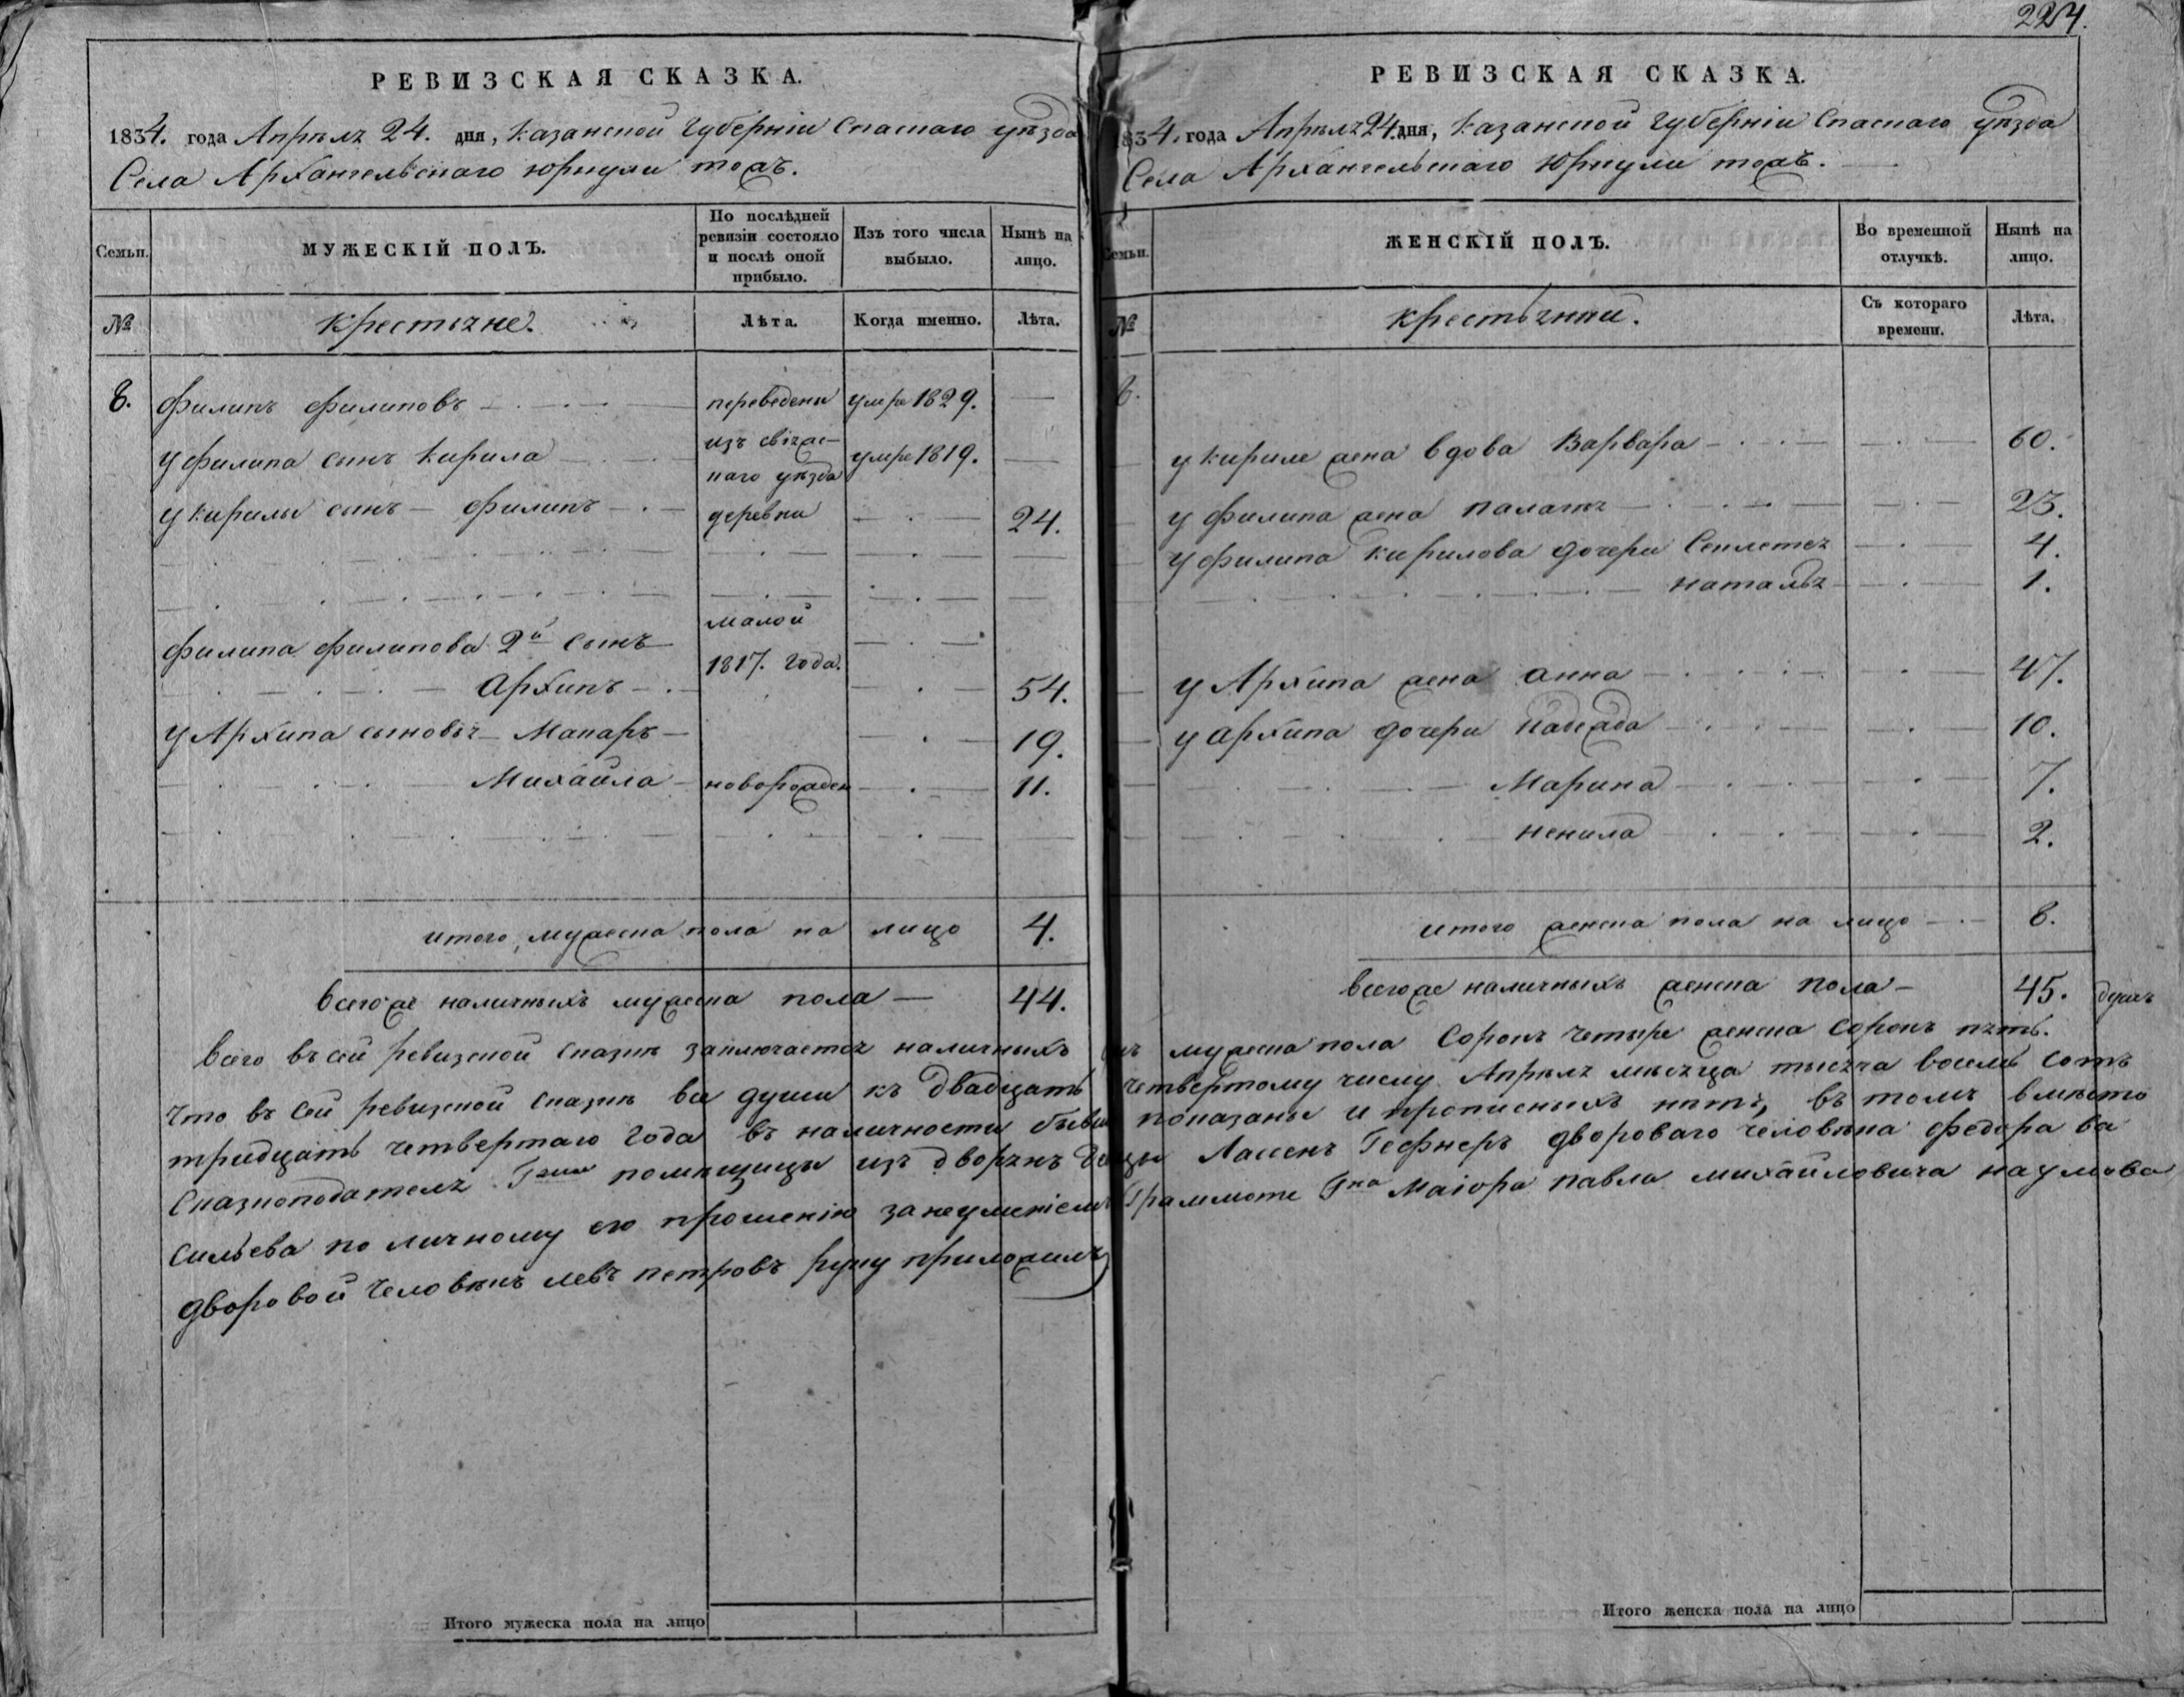 224.
РЕВИЗСКАЯ СКАЗКА.
1834. года Апрѣля 24. дня, Казанской Губерніи Спаскаго уѣзда
Села Архангельскаго Юркули тожъ.
Семьи. МУЖЕСКІЙ ПОЛЪ. По послѣдней ревизіи состояло и послѣ оной прибыло. Изъ того числа выбыло. Нынѣ на лицо.
№ Крестьяне. Лѣта. Когда именно. Лѣта.
8. Филипъ Филиповъ переведены умре 1829.
у Филипа сынъ Кирила изъ свіяж- умре 1819.
скаго уѣзда
у Кирилы сынъ Филипъ деревни 24.
малой
Филипа Филипова 2й сынъ 1817. года.
Архипъ 54.
у Архипа сыновья Макаръ 19.
Михайла новорожден 11.
итого мужеска пола на лицо 4.
всего же наличныхъ мужеска пола 44.
РЕВИЗСКАЯ СКАЗКА.
1834. года Апрѣля 24. дня, Казанской Губерніи Спаскаго уѣзда
Села Архангельскаго Юркули тожъ.
Семьи. ЖЕНСКІЙ ПОЛЪ. Во временной отлучкѣ. Нынѣ на лицо.
№ Крестьянки. Съ котораго времени. Лѣта.
8.
у Кирилы жена вдова Варвара 60.
у Филипа жена Палагя 23.
у Филипа Кирилова дочери 4.
Наталья 1.
у Архипа жена Анна 47.
у Архипа дочери Надежда 10.
Марина 7.
Ненила 2.
итого женска пола на лицо 8.
всего же наличныхъ женска пола 45. душъ
Всего въ сей ревизской сказкѣ заключается наличныхъ мужеска пола сорокъ четыре женска сорокъ пять.
Что въ сей ревизской сказкѣ все души къ двадцать четвертому числу Апрѣля мѣсяца тысяча восемь сотъ
тридцать четвертаго года въ наличности бывши показаны и прописныхъ нѣтъ, въ томъ вмѣсто
Сказкоподателя Гжи помѣщицы изъ дворянъ Лассенъ Гефнеръ двороваго человѣка Федора Ва
сильева по личному его прошенію за неумѣніемъ Граммоте Гна Маіора Павла Михайловича Наумова
дворовой человѣкъ Левъ Петровъ руку приложилъ
Итого мужеска пола на лицо
Итого женска пола на лицо